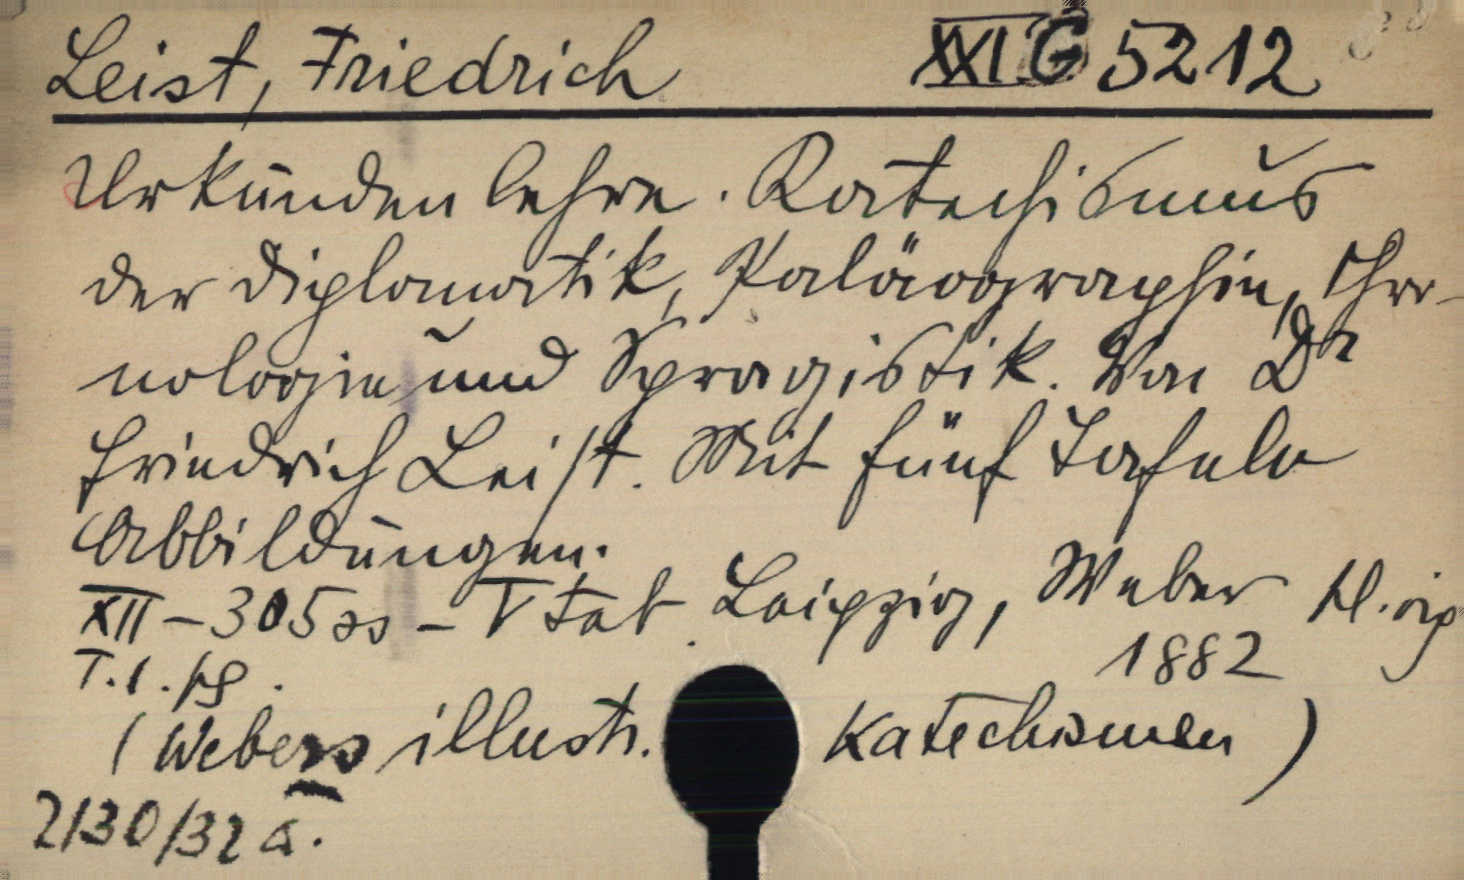 Leist, Friedrich XXI G 5212
Urkundenlehre. Katechismus
der Diplomatik, Paläographie, Chro-
nologie und Spragistik. Von Dr
Friedrich Leist. Mit fünf Tafeln
Abbildungen.
XII – 305 ss – V Taf. Leipzig, Weber
1882
T.1.
(Webers illustr. Katechismen)
2130/32 a.